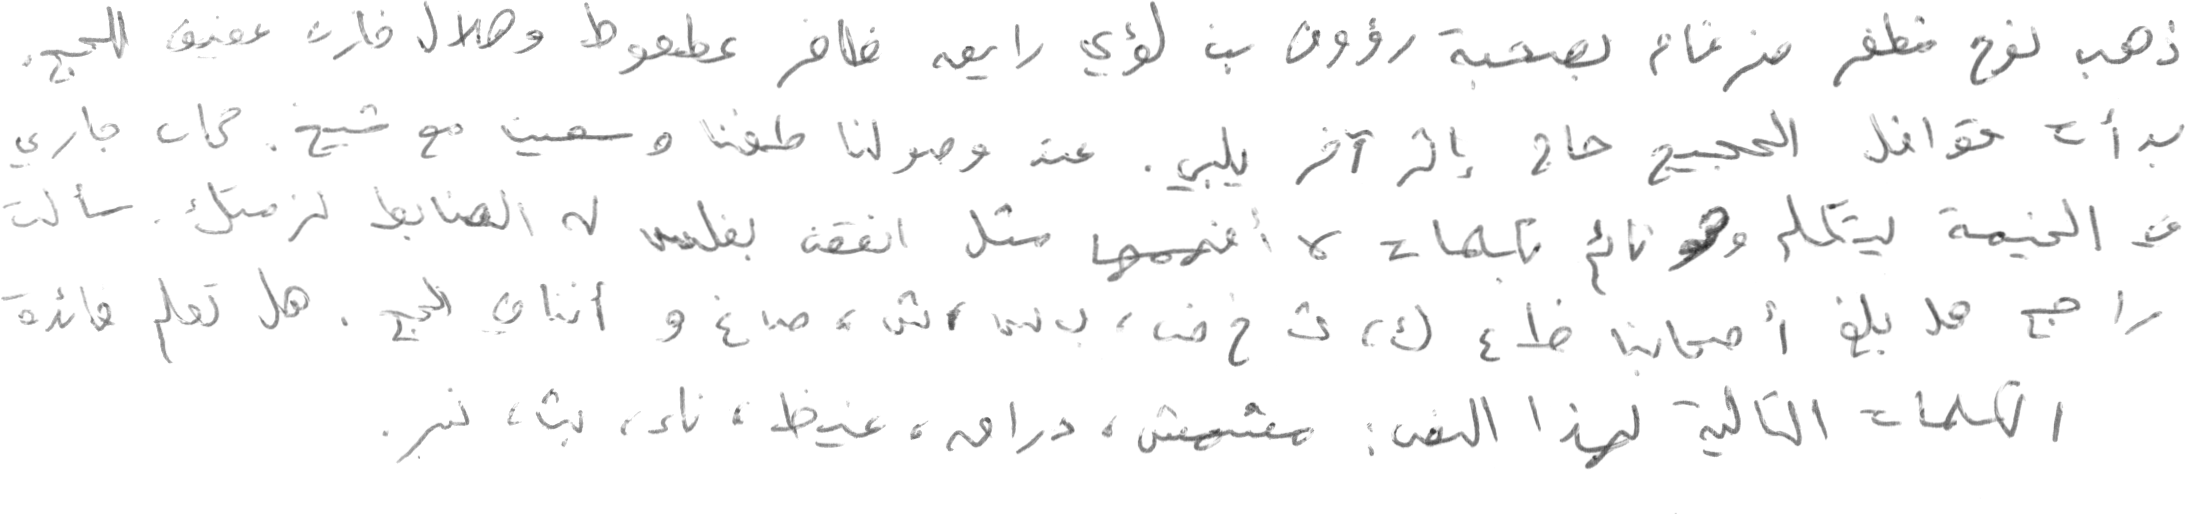 ذهب نوح مظفر ضرغام بصحبة رؤوف بن لؤي رايق ظافر عطعوط وهلال فارت عفيف للحج.
بدأت قوافل الحجيج حاج إثر آخر يلبي. عند وصولنا طفنا وسعينا مع شيخ. كان جاري
في الخيمة يتكلم وهو نائم بكلمات لا أفهمها مثل انفقت بغلس له الضابط لزمتك. سألت
راجح هل بلغ أصحابنا ظ ع ك، ث خ ض، ب س، ش، ص غ و أثناء الحج. هل تعلم فائدة
الكلمات التالية لهذا النص: مشمش، دراق، غيظ، ناء، بث، نبر.